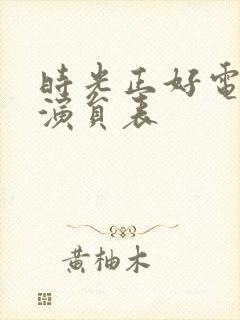 時光正好電
演員表
黃柚木